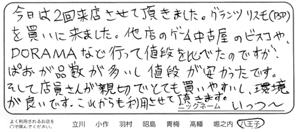 今日は2回来店させて頂きました。グランツリスモ(PSP)
を買いに来ました。他店のゲム中古屋のビスコや、
DORAMAなど行って値段を比べたのですが、
ぱおが品数が多いし値段が安かったです。
そして店員さんが親切でとても買いやすい、環境
が良いです。これからも利用させて頂きます。
よく利用されるお店を
○で囲んでください。
ペンネーム
いっつ〜
立川 小作 羽村 昭島 青梅 高幡 堀之内 八王子